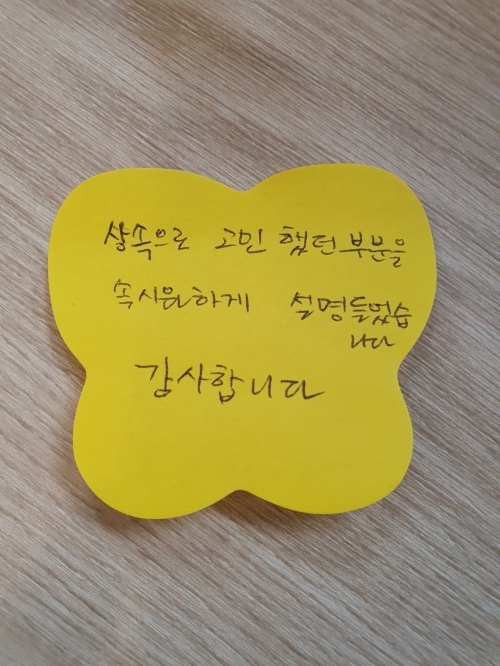 상속으로 고민 했던 부분을
속시원하게 설명들었습
니다
감사합니다